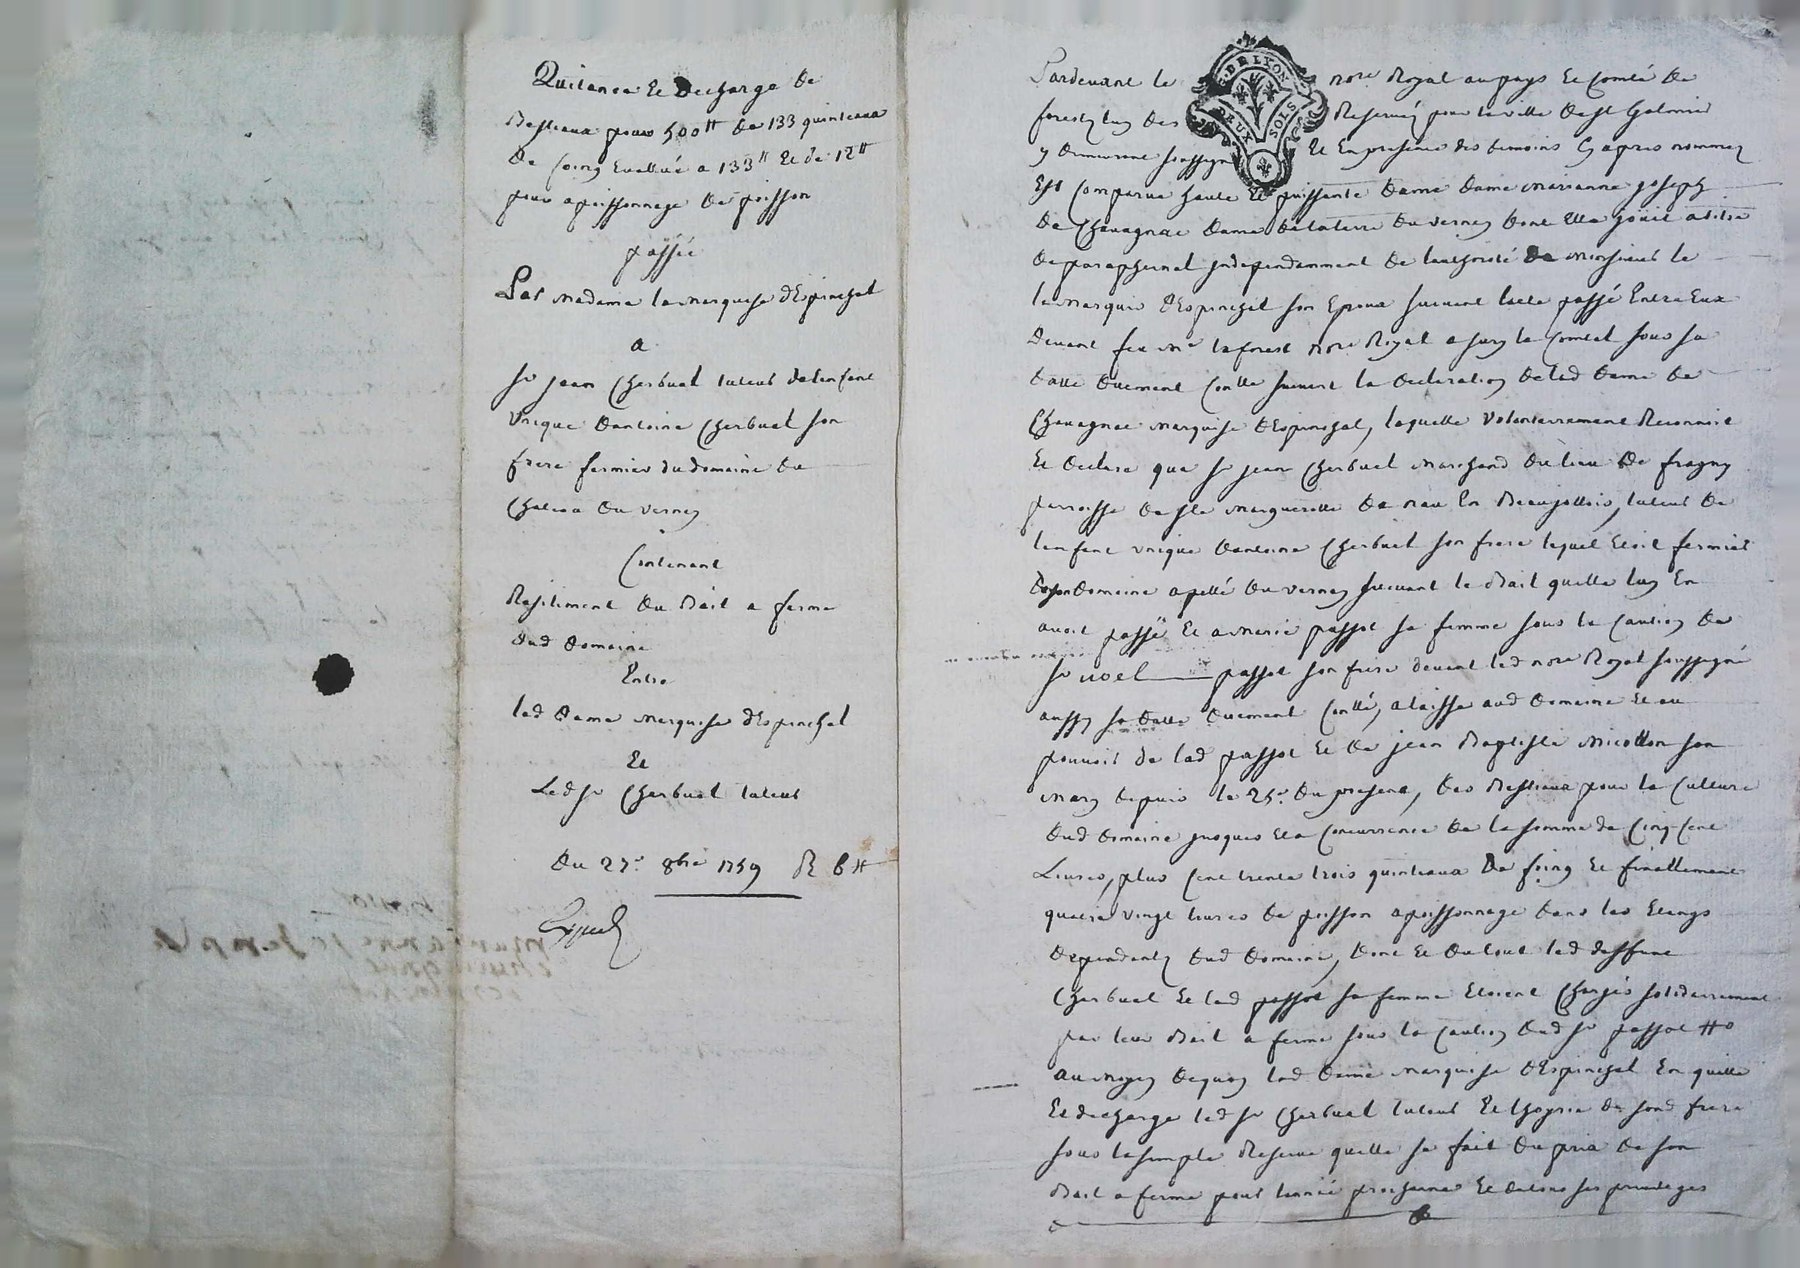 Quitance Et Decharge De
Bestiaux pour 500ᵗᵗ De 133 quinteaux
De foing Evallué a 133ᵗᵗ Et de 12ᵗᵗ
pour apoissonnage De poisson
passée
Par Madame la Marquise d'Espinchal
a
Sr jean Cherbuet tuteur de lenfant
Unique dantoine Cherbuet son
frere fermier du domaine du
Chateau Du Verney
Contenant
Resiliment Du Bail a ferme
dud domaine
Entre
lad dame Marquise d'Espinchal
Et
Led Sr Cherbuet tuteur
Du 27e 8bre 1759 R 6ᵗᵗ
Pardevant le nore Royal au pays Et Comté De
forest lun des Reservés pour la ville de st Galmier
y demeurant soussigné Et En presence des temoins Cy apres nommez
Est Comparue haute Et puissante dame dame Marianne joseph
De Chavagnac dame De la terre Du Verney dont Elle jouit a titre
De paraphernal jndependamment De lauthorité De Monsieur le
le Marquis D'Espinchal son Epoux suivant lacte passé Entre Eux
Devant feu Me laforest nore Royal a sury le Comtal sous sa
datte duement Conllé suivant la declaration De lad dame De
Chavagnac Marquise D'Espinchal, laquelle volontairement Reconnoit
Et declare que Sr jean Cherbuet Marchand du lieu De fragny
parroisse de ste Margueritte De neau En Beaujollois, tuteur De
lenfant unique dantoine Cherbuet son frere lequel Etoit fermier
De son domaine apellé Du Verney suivant le Bail quelle luy En
avoit passé Et a Marie passot sa femme sous la Caution De
Sr noel passot son frere devant led nore Royal soussigné
aussy sa datte duement Conllé, a laissé aud domaine Et au
pouvoir de lad passot Et De jean Baptiste Micollon son
Mary depuis le 25e Du present, Des Bestiaux pour la Culture
dud domaine jusques Et a Concurrence De la somme de Cinq Cent
Livres, plus Cent trente trois quinteaux De foing Et finallement
quatre vingt livres de poisson apoissonnage dans les Etangs
dependants dud domaine, dont Et du tout led deffunt
Cherbuet Et lad passot sa femme Etoient Chargés solidairement
par leur Bail a ferme sous la Caution dud Sr passot
au Moyen dequoy lad dame Marquise D'Espinchal En quitte
Et decharge led Sr Cherbuet tuteur Et lhoyrie de sond frere
sous la simple Reserve quelle se fait Du prix De son
Bail a ferme pour lannée prochaine Et de tous ses privileges
G. DE LYON
DEUX SOLS